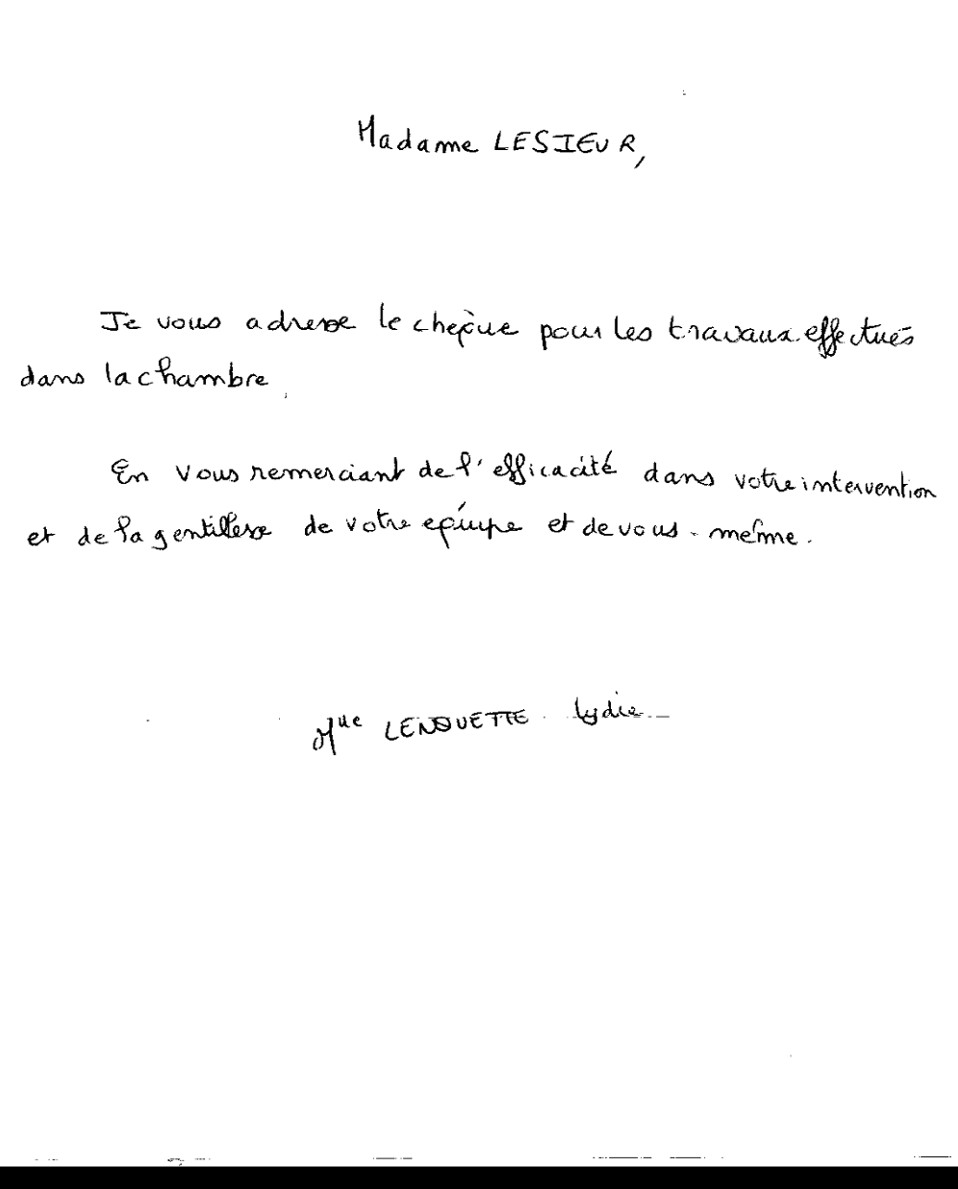 Madame LESIEUR,
Je vous adresse le chèque pour les travaux effectués
dans la chambre.
En vous remerciant de l'efficacité dans votre intervention
et de la gentillesse de votre équipe et de vous-même.
Mlle Lydie